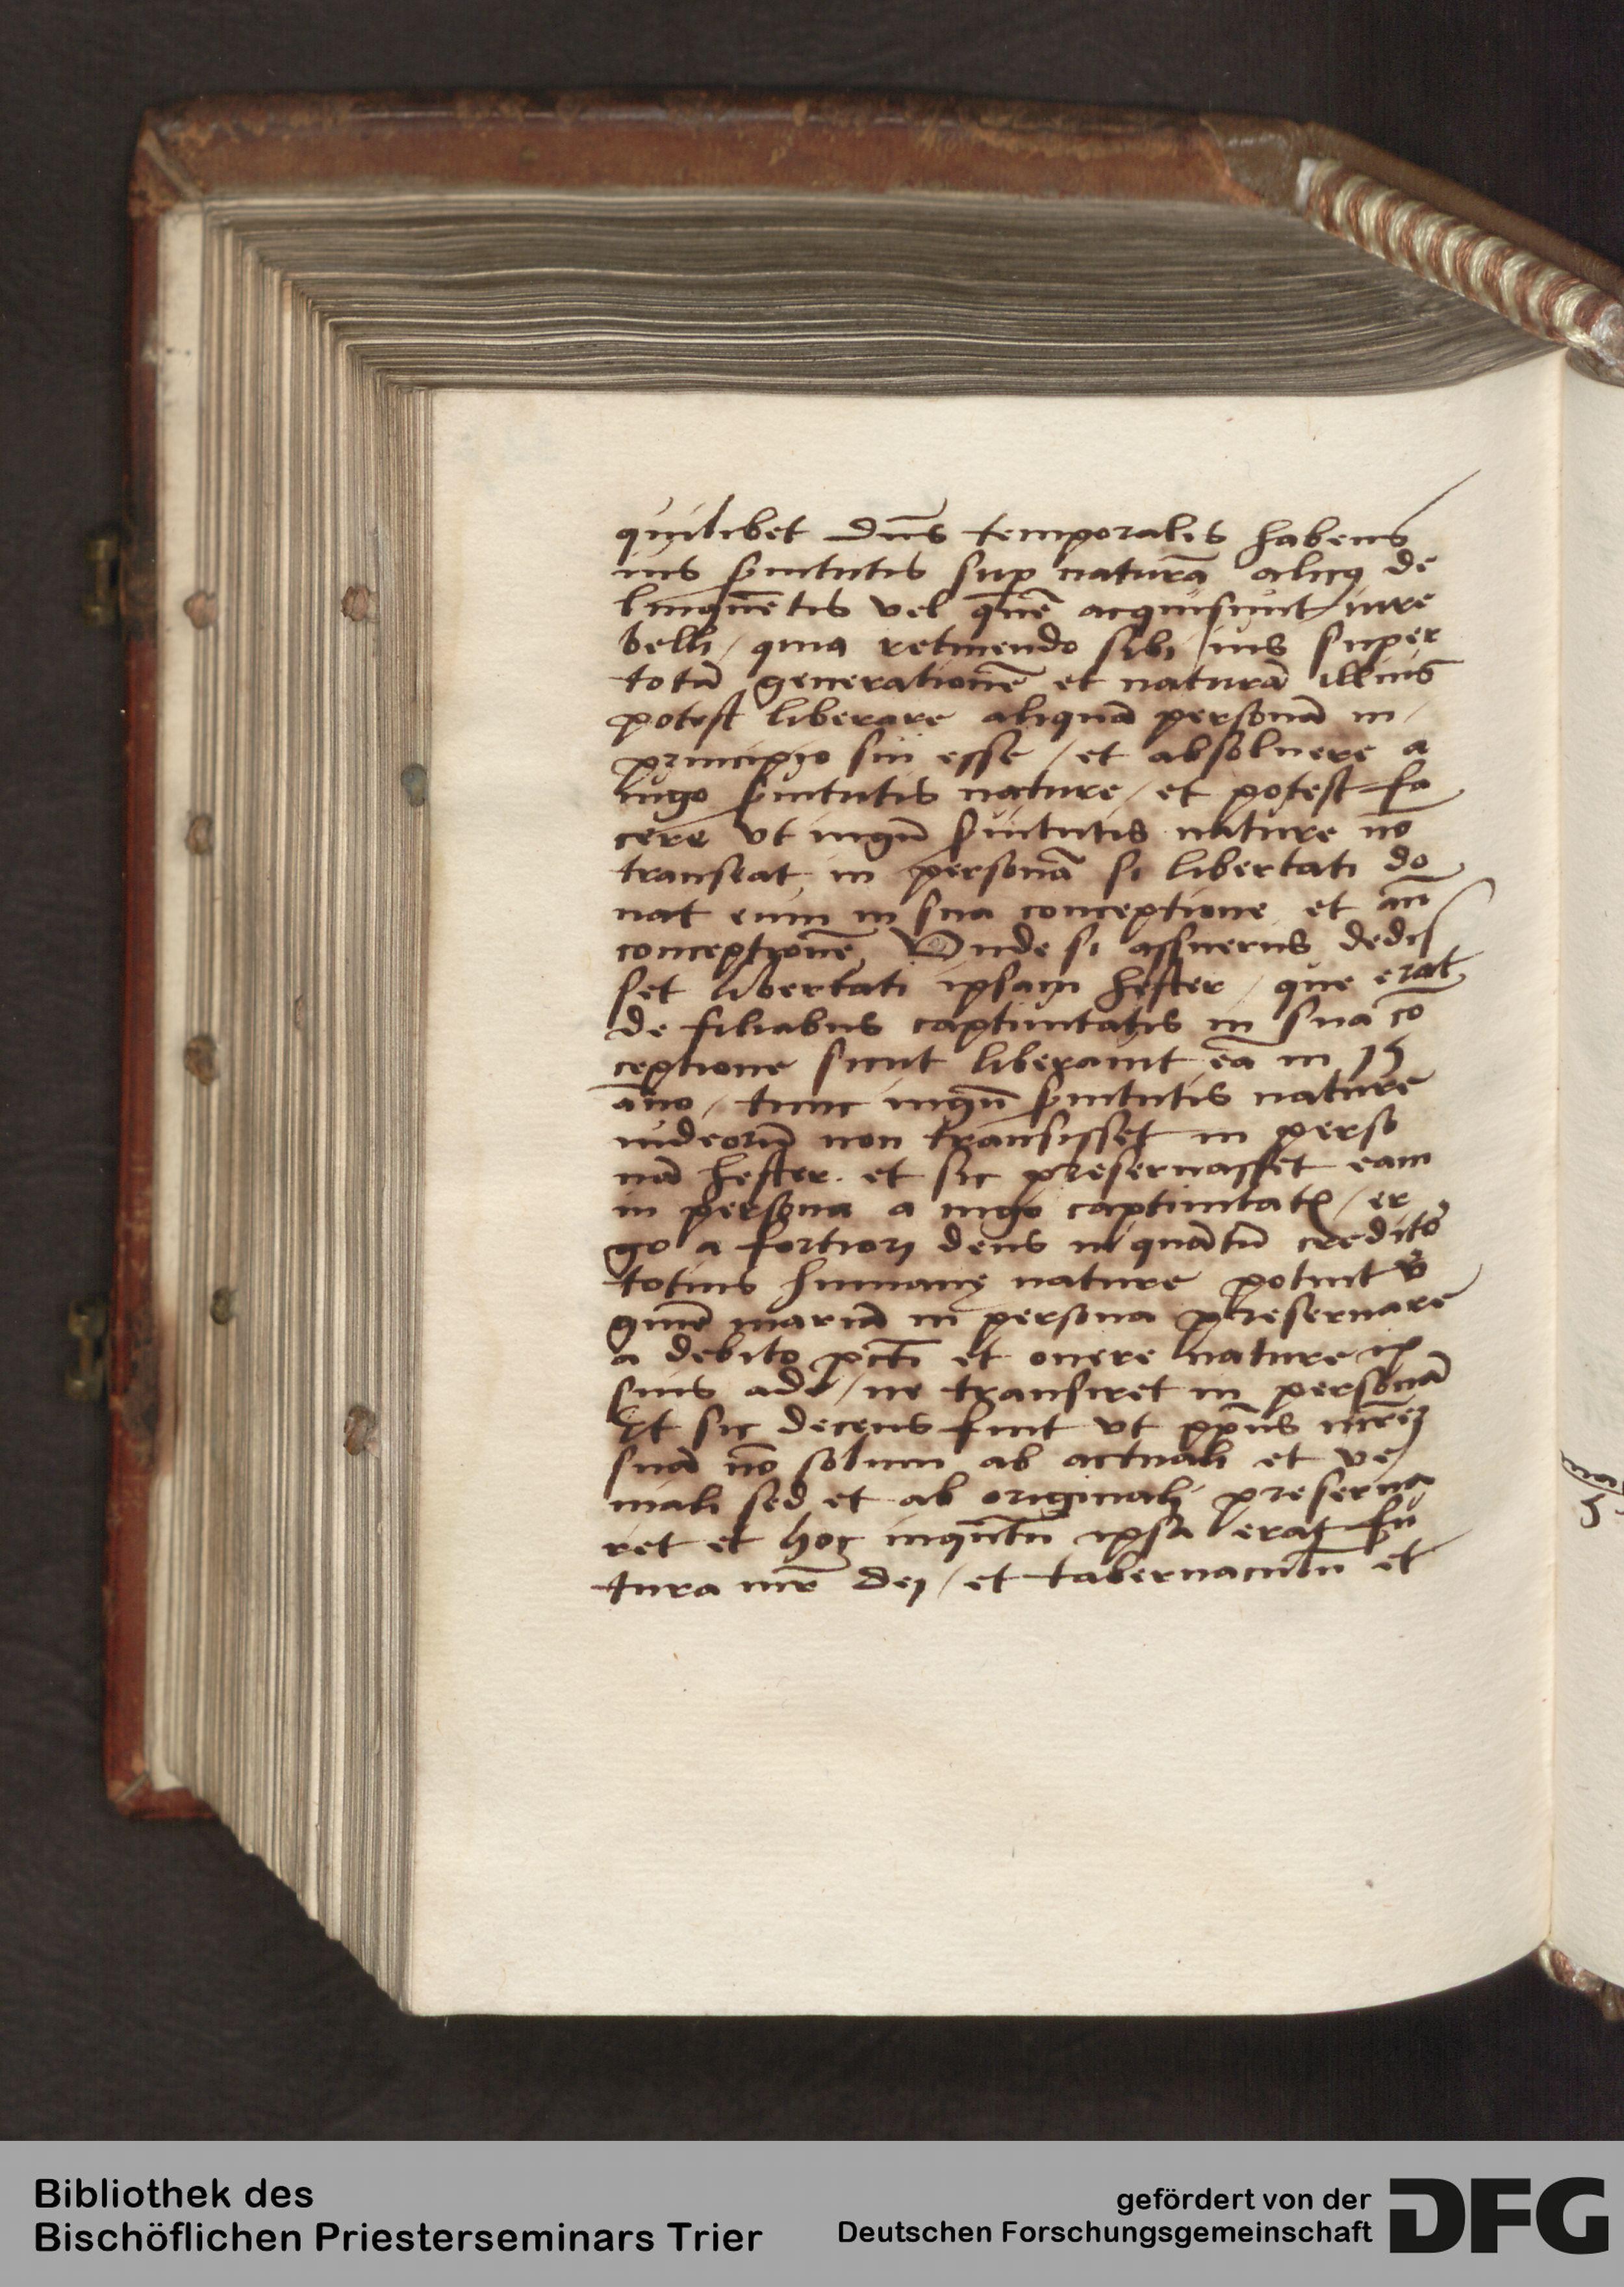 quilibet dn̄s temporalis habens
ius s̄uitutis sup naturā alicuꝯ de
linquētis vel quē acquisiuit iure
belli / quia retinendo sibi ius super
totā generationē et naturā illius
potest liberare aliquā personā in
principio sui esse / et absoluere a
iugo s̄uitutis nature / et potest fa
cere vt iugū s̄uitutis nature nō
transeat in personā si libertati do
nat eum in sua conceptione et an̄
conceptionē Vnde si assuerus dedis
set libertati ipsam hester / que erat
de filiabus captiuitatis in sua cō
ceptione sicut liberauit eā in 15
āno / tunc iugū s̄uitutis nature
iudeorū non transisset in perso
nā hester. et sic preseruasset eam
in persona a iugo captiuitatꝭ / er
go a fortiori deus inquātū creditō
totius humane nature potuit vͥ
ginē mariā in persona preseruare
a debito pct̄i et onere nature ip
sius ade / ne transiret in personā
Et sic decens fuit vt xp̄us mr̄eꝫ
suā nō solum ab actuali et ve
niali sed et ab originali preserua
ret et hoc inqn̄tū ipsa erat fu
tura mr̄ dei / et tabernaculū et
Bibliothek des
Bischöflichen Priesterseminars Trier
gefördert von der
Deutschen Forschungsgemeinschaft
DFG